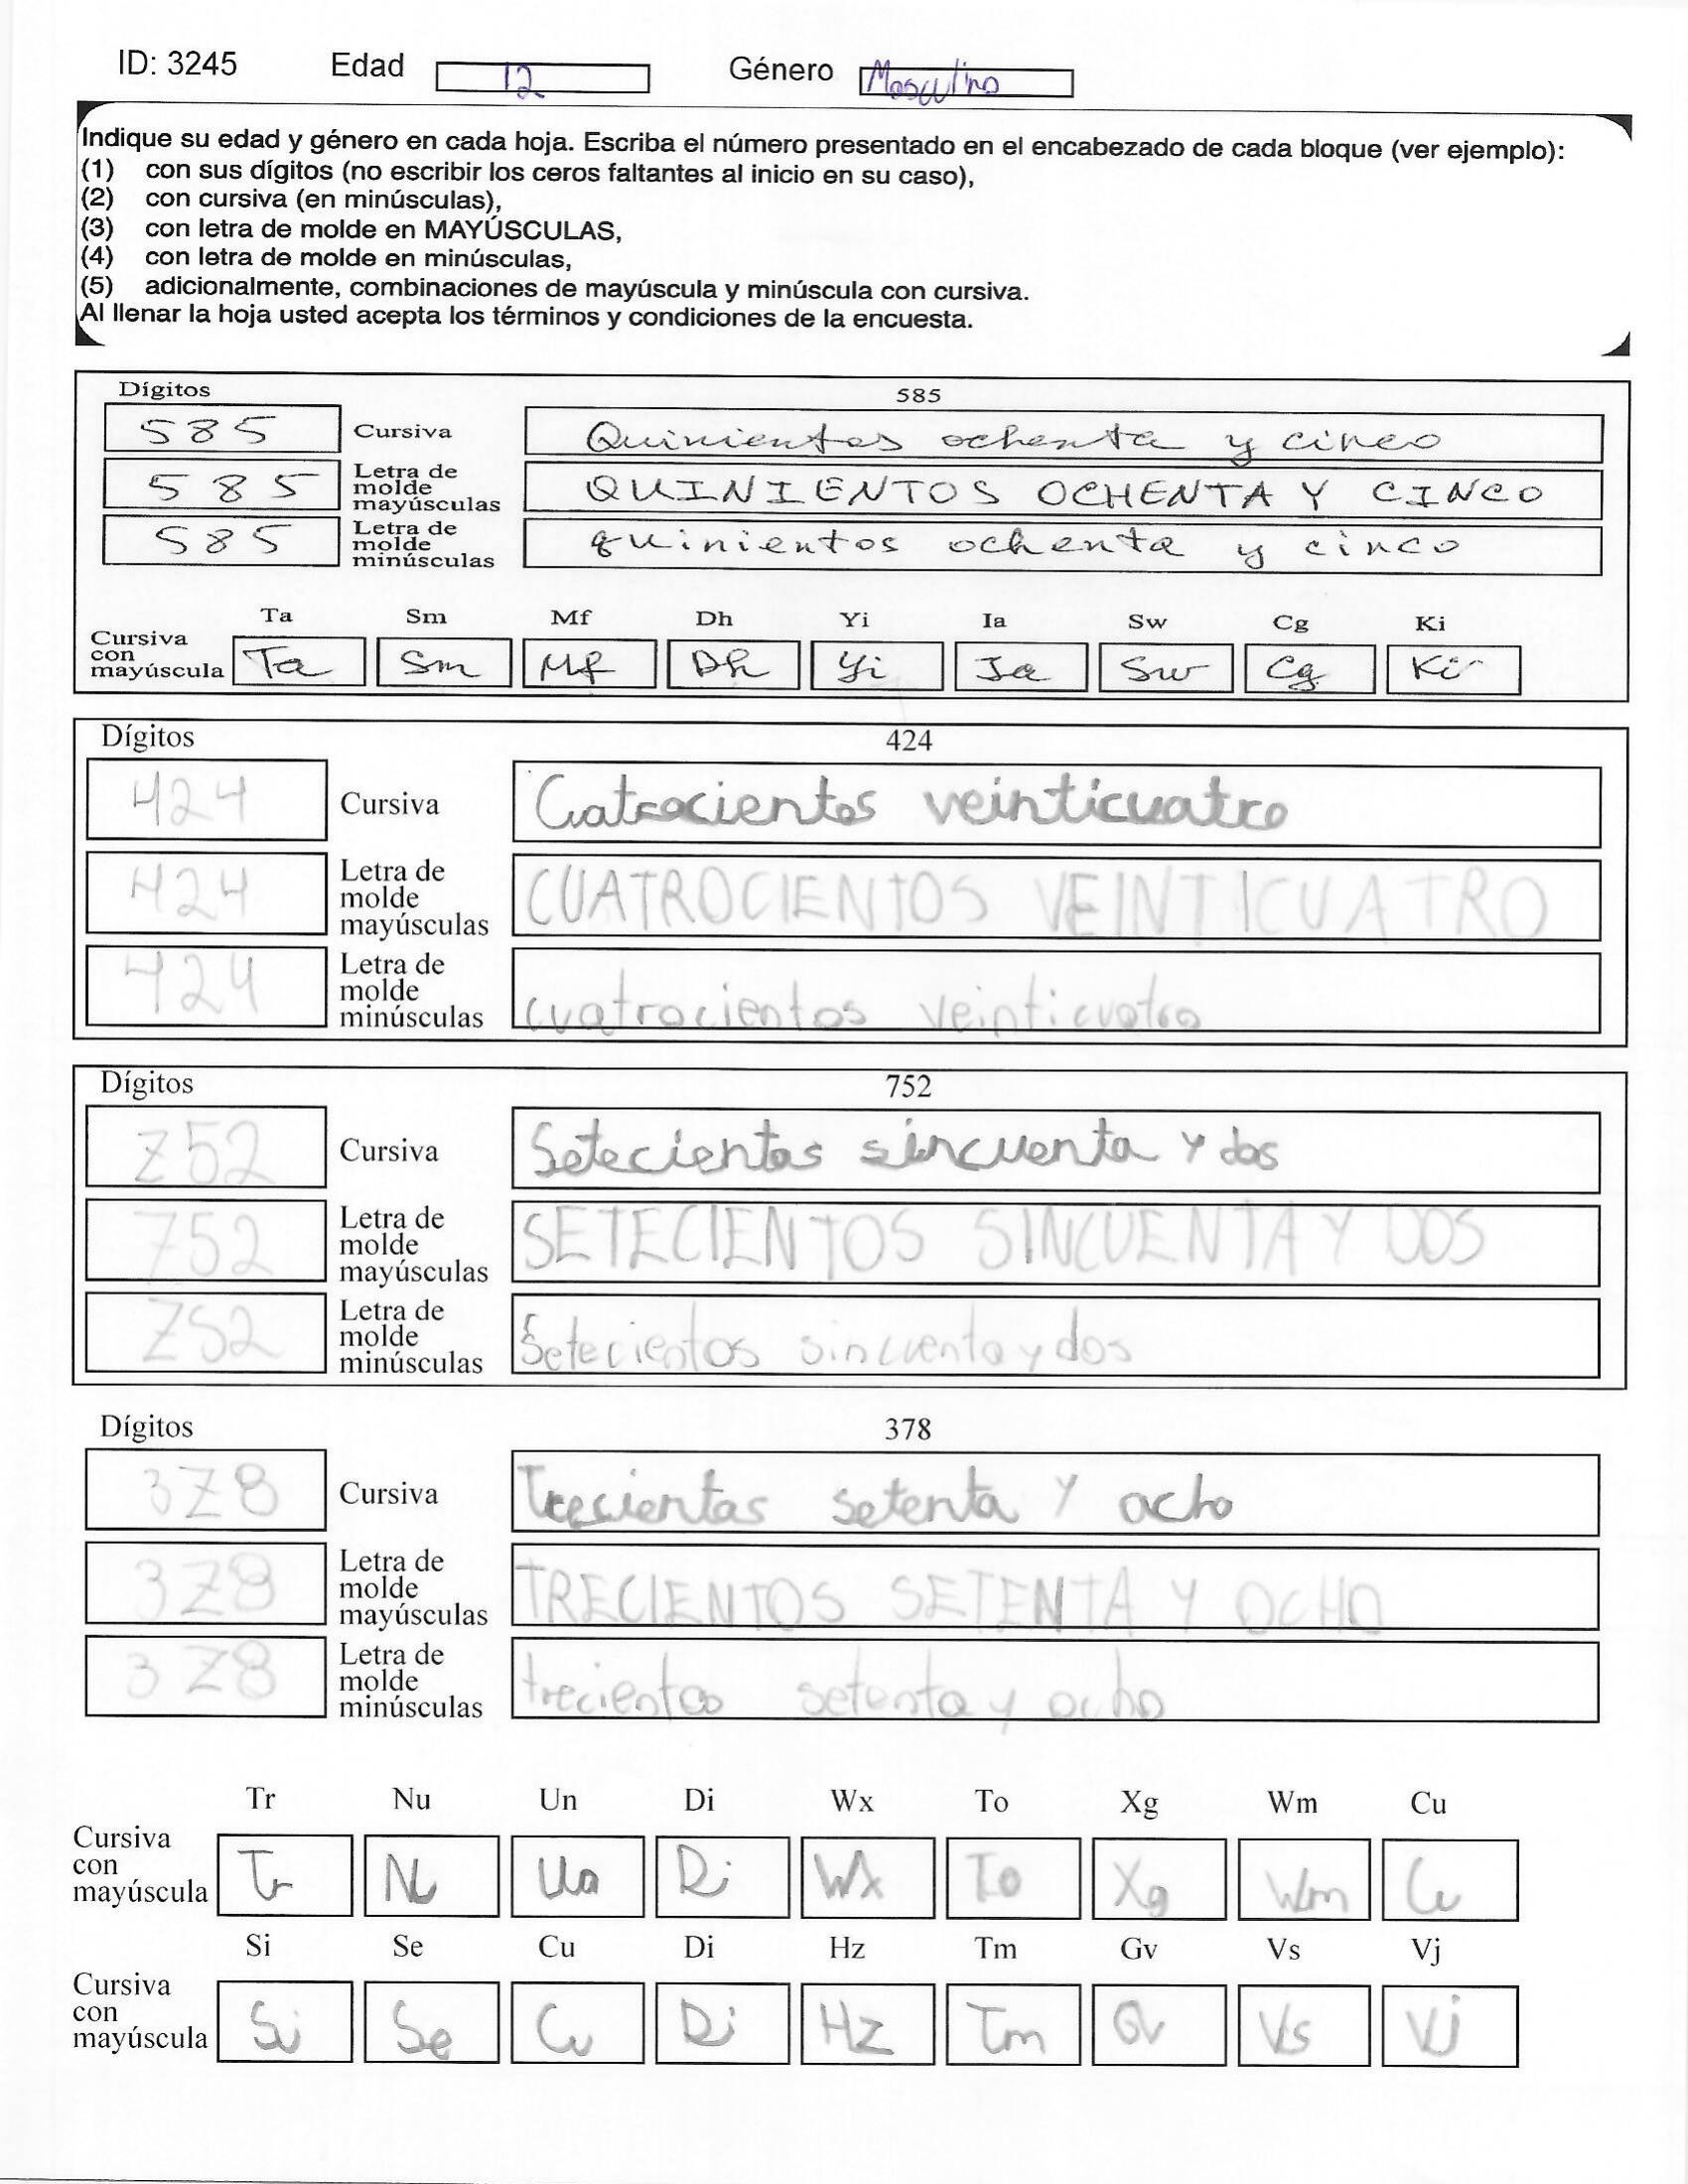 ID: 3245 Edad 12 Género Masculino
Indique su edad y género en cada hoja. Escriba el número presentado en el encabezado de cada bloque (ver ejemplo):
(1) con sus dígitos (no escribir los ceros faltantes al inicio en su caso),
(2) con cursiva (en minúsculas),
(3) con letra de molde en MAYÚSCULAS,
(4) con letra de molde en minúsculas,
(5) adicionalmente, combinaciones de mayúscula y minúscula con cursiva.
Al llenar la hoja usted acepta los términos y condiciones de la encuesta.
Dígitos 585
585 Cursiva Quinientos ochenta y cinco
585 Letra de molde mayúsculas QUINIENTOS OCHENTA Y CINCO
585 Letra de molde minúsculas quinientos ochenta y cinco
Ta Sm Mf Dh Yi Ia Sw Cg Ki
Cursiva con mayúscula Ta Sm Mf Dh Yi Ia Sw Cg Ki
Dígitos 424
424 Cursiva Cuatrocientos veinticuatro
424 Letra de molde mayúsculas CUATROCIENTOS VEINTICUATRO
424 Letra de molde minúsculas cuatrocientos veinticuatro
Dígitos 752
752 Cursiva Setecientos sincuenta y dos
752 Letra de molde mayúsculas SETECIENTOS SINCUENTA Y DOS
752 Letra de molde minúsculas Setecientos sincuenta y dos
Dígitos 378
378 Cursiva Trecientas setenta y ocho
378 Letra de molde mayúsculas TRECIENTOS SETENTA Y OCHO
378 Letra de molde minúsculas trecientos setenta y ocho
Tr Nu Un Di Wx To Xg Wm Cu
Cursiva con mayúscula Tr Nu Un Di Wx To Xg Wm Cu
Si Se Cu Di Hz Tm Gv Vs Vj
Cursiva con mayúscula Si Se Cu Di Hz Tm Gv Vs Vj